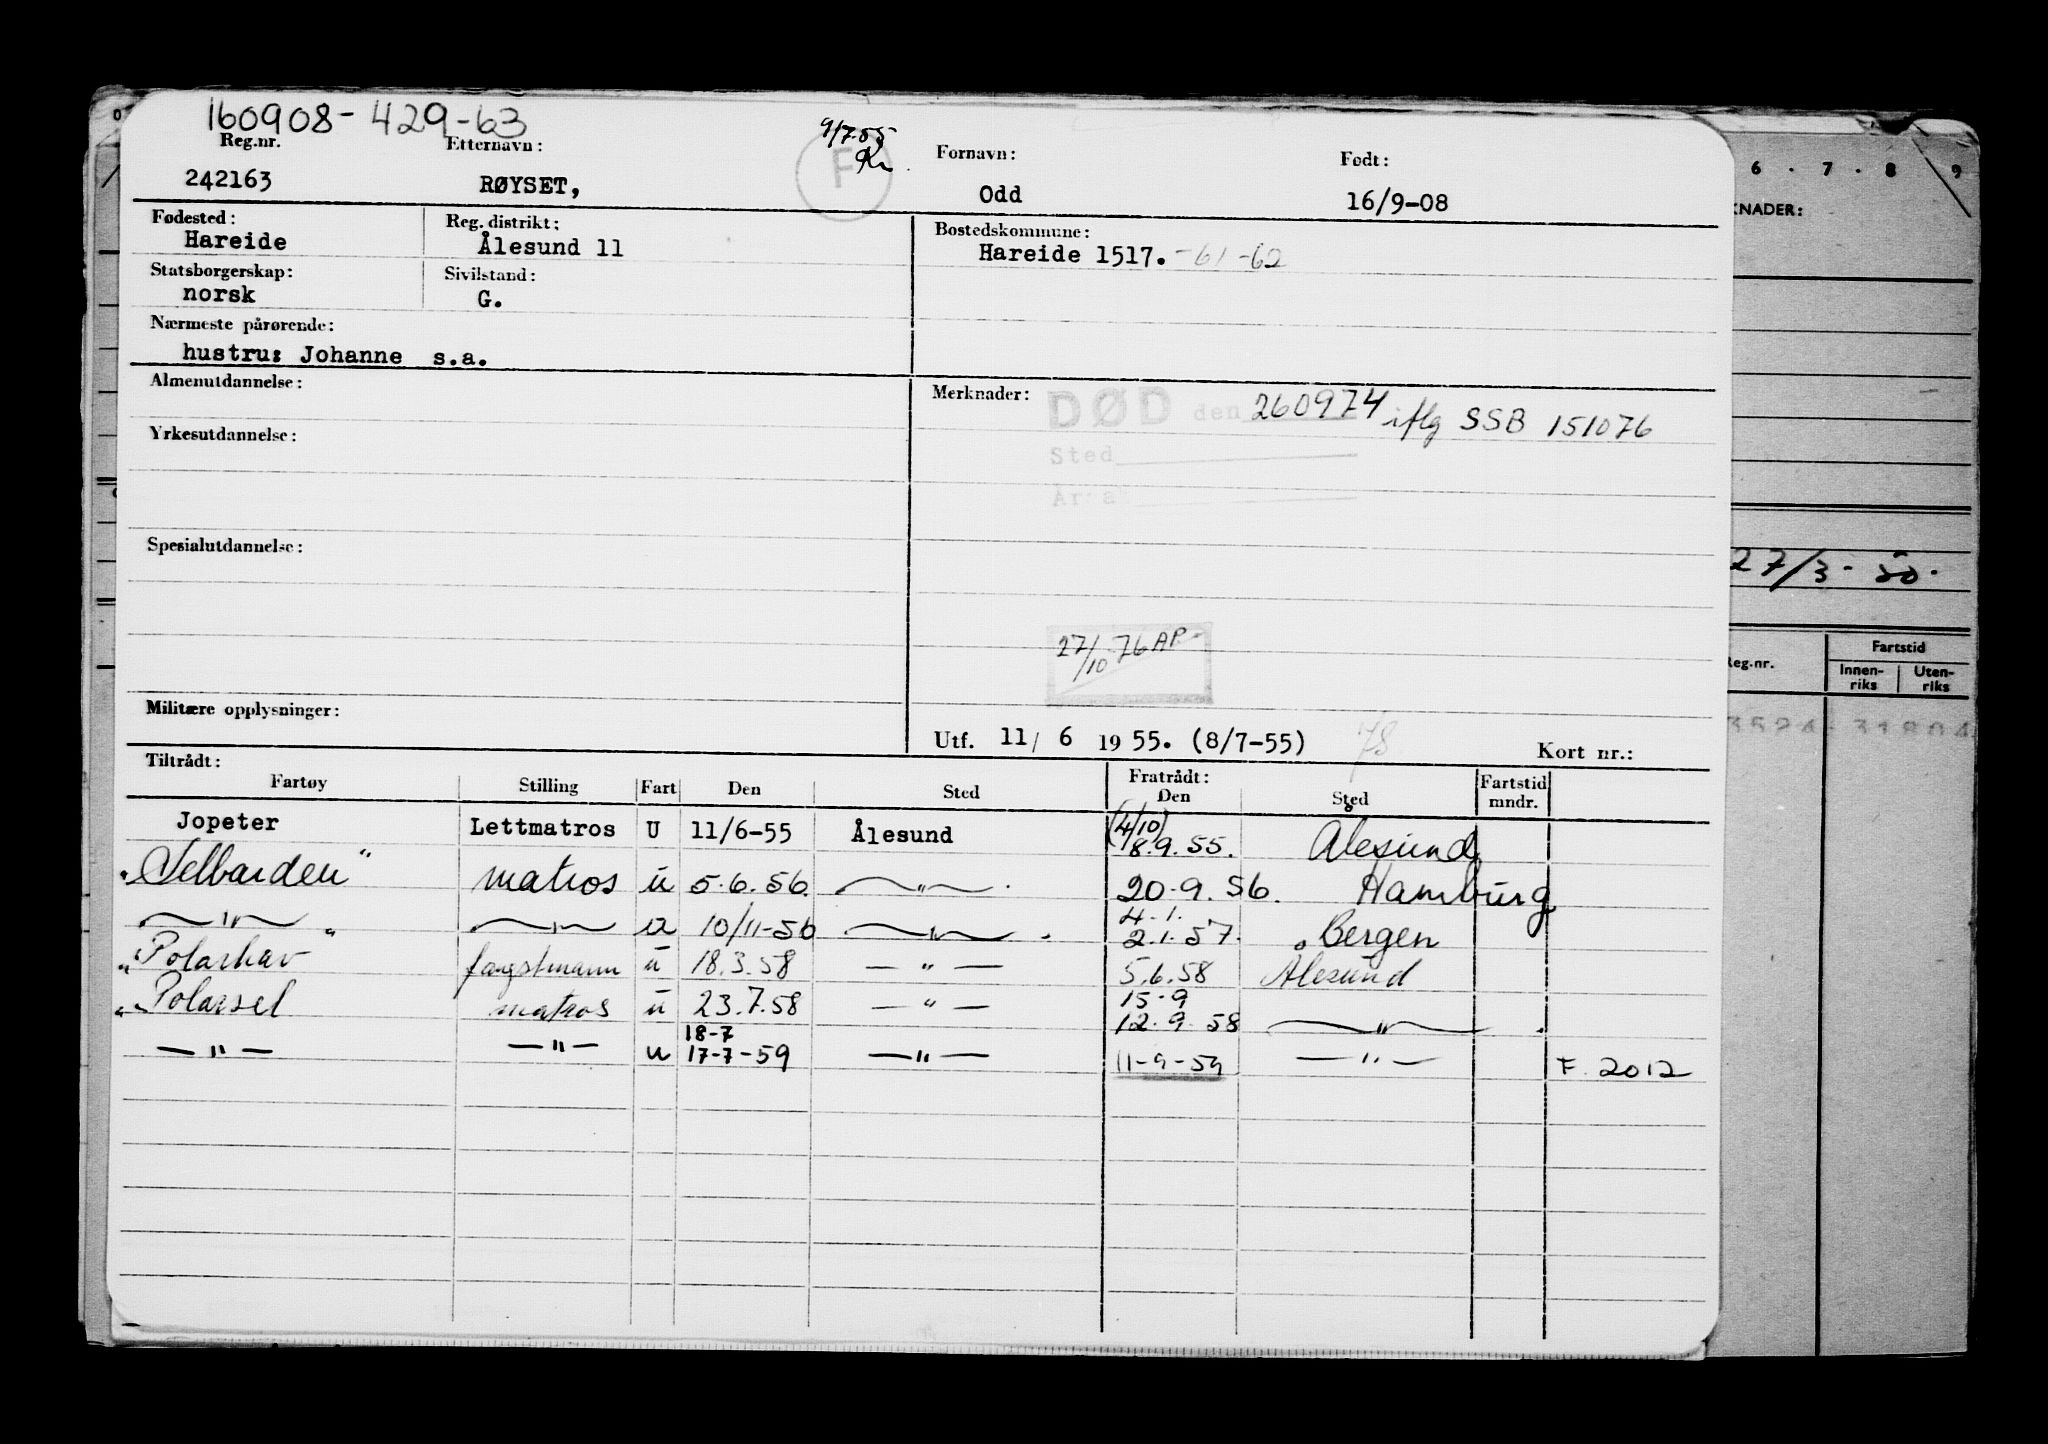 160908-429-63
9/7.55
Kr
F
Reg.nr. Etternavn: Fornavn: Født:
242163 RØYSET, Odd 16/9-08
Fødested: Reg. distrikt: Bostedskommune:
Hareide Ålesund 11 Hareide 1517. -61-62
Statsborgerskap: Sivilstand:
norsk G.
Nærmeste pårørende:
hustru: Johanne s.a.
Almenutdannelse: Merknader: DØD den 260974 iflg SSB 151076
Yrkesutdannelse: Sted
Årsa
Spesialutdannelse:
27/10-76 AP.
Militære opplysninger:
Utf. 11/ 6 1955. (8/7-55) 78 Kort nr.:
Tiltrådt: Fratrådt:
Fartøy Stilling Fart Den Sted Den Sted Fartstid mndr.
Jopeter Lettmatros U 11/6-55 Ålesund (4/10) 8.9.55. Ålesund
"Selbarden" matros u 5.6.56. —"—. 20.9.56. Hamburg
—"— —"— u 10/11-56 —"—. 4.1. 2.1.57. Bergen
"Polarhav" fangstmann u 18.3.58 —"— 5.6.58 Ålesund
"Polarsel matros u 23.7.58 —"— 15.9 12.9.58 —"—.
—"— —"— u 18-7 17-7-59 —"— 11-9-59 —"— F. 2012
6 . 7 . 8 . 9
KNADER:
27/3-50.
Reg.nr. Fartstid
Innen-riks Uten-riks
3524-31804